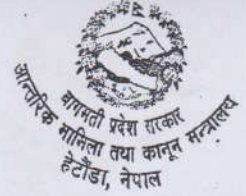 बागमती प्रदेश सरकार
आन्तरिक मामिला तथा कानून मन्त्रालय
हेटौंडा, नेपाल